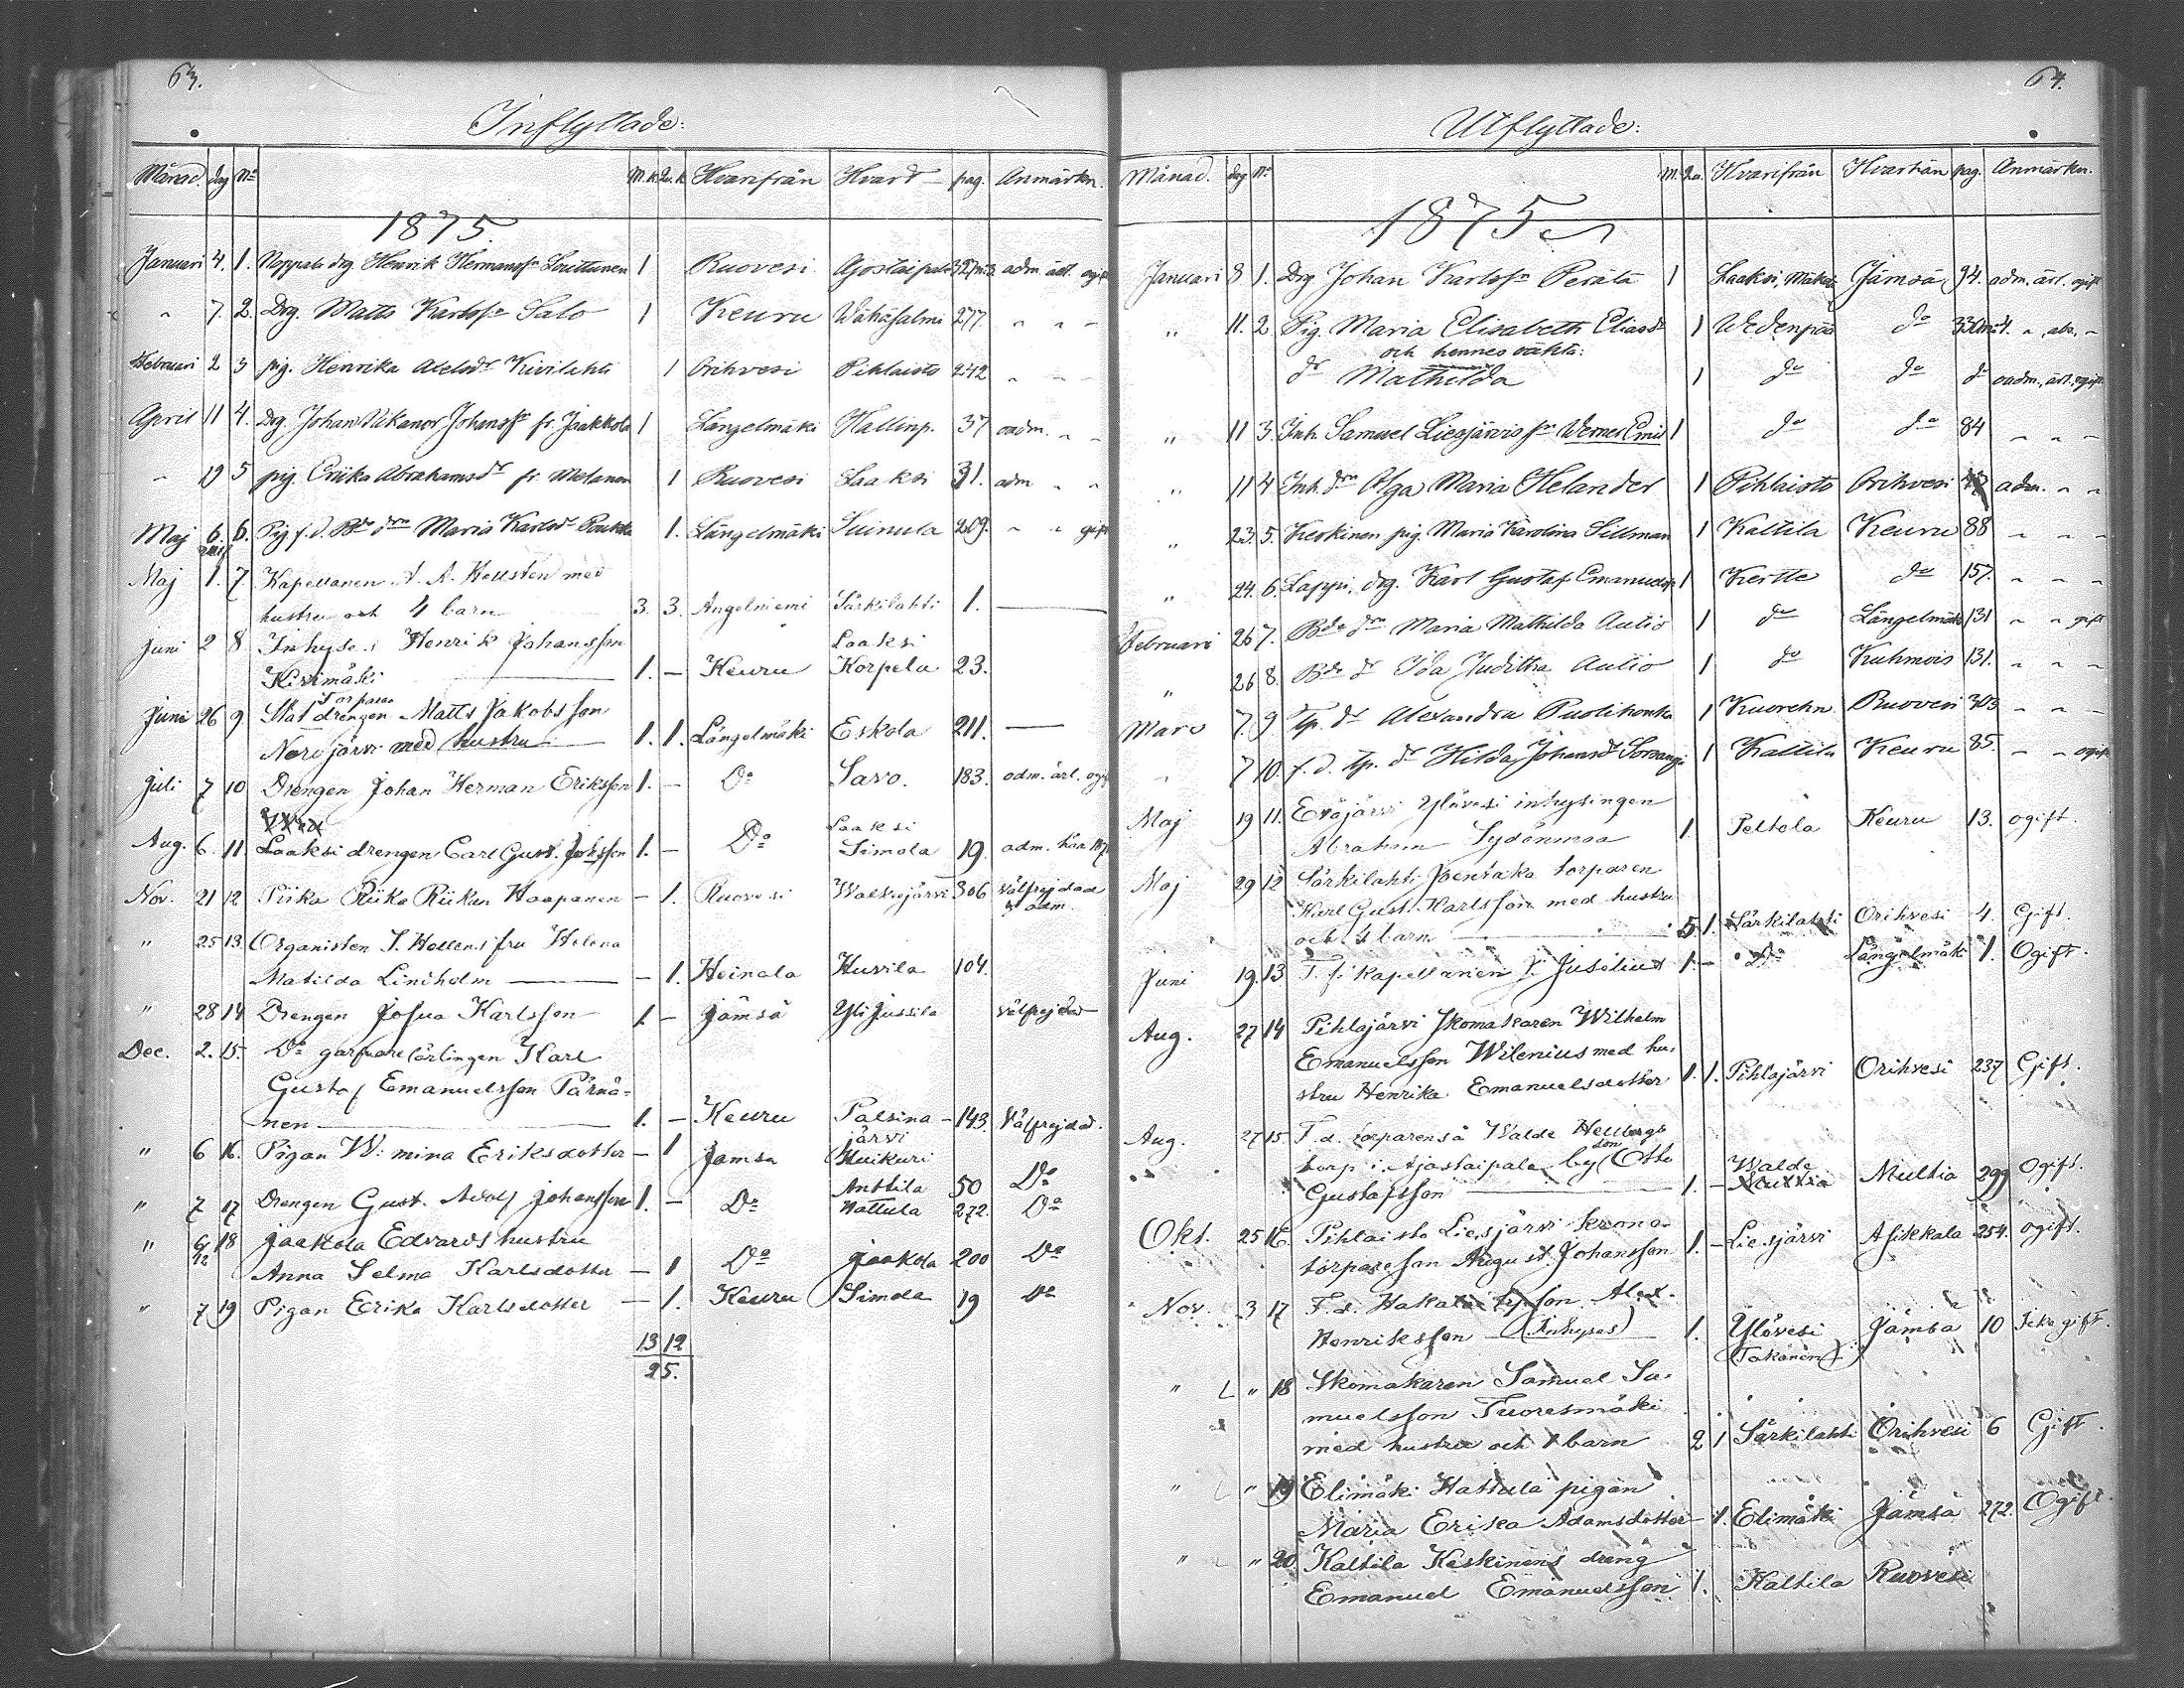 63.
Inflyttade:
Månad. dag No M.k. Qv.k. Hvarifrån Hvart pag. Anmärkn.
1875.
Januari 4. 1. drg Henrik Hermanss. 1 Ruovesi adm. ärl. ogift
" 7. 2. Drg. Matts Karlss. Salo 1 Keuru Wähäsalmi 277. " " "
Februari 2 3 pig. Henrika Axelsdr Kivilahti 1 Orihvesi Pihlaisto 242 " " "
April 11 4. Drg. Johan Nikanor Johanss. fr. Jaakkola 1 Längelmäki Hallinp. 37 oadm. " "
" 19 5 pig. Erika Abrahamsdr fr. 1 Ruovesi Laaksi 31. adm " "
Maj 6. 6. Pig f.d. Maria Karlsdr 1. Längelmäki Suinula 209. " " gift
Maj 1. 7 Kapellanen A. A. Hellsten med
hustru och 4 barn 3. 3. Angelniemi Särkilahti 1. —
Juni 2 8 Inhyses Henrik Johansson Laaksi
Kivimäki 1. — Keuru Korpela 23.
Torpare
Juni 26 9 Stat drengen Matts Jakobsson
järvi med hustru 1. 1. Längelmäki Eskola 211. —
Juli 7 10 Drengen Johan Herman Eriksson 1. — Do Savo. 183. adm. ärl. ogift
Laaksi
Aug. 6. 11. Laaksi drengen Carl Gust. Johsson 1. — Do Simola 19. adm.
Nov. 21 12 Piika Riika Haapanen — 1. Ruovesi Walkejärvi 306 Välfrejdad
adm.
" 25 13. Organisten J. Hellens fru Helena
Matilda Lindholm — 1. Heinola Huvila 104.
" 28 14 Drengen Josua Karlsson 1 — Jämsä Yli Jussila Välfrejdad
Dec. 2. 15. Do garfvare lärlingen Karl
Gustaf Emanuelsson Pärnä-
nen 1. — Keuru Palsina- 143. Välfrejdad.
järvi
" 6 16. Pigan W:mina Eriksdotter — 1 Jämsä Huikuri
Anttila 50 Do
" 7 17 Drengen Gust. Adolf Johansson 1. — Do Hattula 272. Do
" 6/12 18 Jaakola Edvards hustru
Anna Selma Karlsdotter — 1 Do Jaakola 200 Do
" 7 19 Pigan Erika Karlsdotter — 1. Keuru Simola 19 Do
13 12
25.
64.
Utflyttade:
Månad. dag No M. Qu. Hvarifrån Hvarthän pag. Anmärkn.
1875
Januari 8 1. Drg Johan Karlss. Perälä 1 Laaksi, Jämsä 94. adm. ärl. ogift
" 11. 2. Pig. Maria Elisabeth Eliasdr 1 Wedenpää do
och hennes oäkta:
dr Mathilda 1 do do do oadm., ärl. ogift
" 11 3. Inh. Samuel Liesjärvis sn Werner Emil 1 do do 84 " " "
" 11 4 Inh. drn Olga Maria Helander 1 Pihlaisto Orihvesi adm. " "
" 23. 5. Keskinen pig. Maria Karolina Sillman 1 Kaltila Keuru 88 " " "
" 24. 6. Lappi, drg. Karl Gustaf Emanuelss. 1 Kertte do 157. " " "
Februari 26 7. Bde drn Maria Mathilda Aulio 1 do Längelmäki 131 " " gift
" 26 8. Bde dr Ida Juditha Aulio 1 do Kuhmois 131. " " "
Mars 7. 9 Tp. dr Alexandra Puolihonka 1 Ruovesi 303 " " "
" 7 10. f. d. tp. dr Hilda Johansdr 1 Kaltila Keuru 85. " " ogift
Maj 19 11. Eväjärvi Ylövesi inhysingen
Abraham Sydänmaa 1. Peltola Keuru 13. ogift.
Maj 29 12 Särkilahti torparen
Karl Gust. Karlsson med hustru
och 4 barn 5 1. Särkilahti Orihvesi 4. Gift.
Juni 19. 13 T. f. kapellanen J. Juselius 1 — Do Längelmäki 1. Ogift.
Aug. 27 14 Pihlajärvi Skomakaren Wilhelm
Emanuelsson Wilenius med hu-
stru Henrika Emanuelsdotter 1. 1. Pihlajärvi Orihvesi 237 Gift.
Aug. 27 15. F. d. torparens å Walde Hellbergs
torp i Ajostaipale by son Otto
Gustafsson 1. — Walde Multia 299 ogift.
Okt. 25 16. Pihlaisto Liesjärvi krono-
torpareson August Johansson 1. — Liesjärvi Asikkala 254. ogift.
Nov. 3 17 F. d. Hakala tp. son Alex.
Henriksson (Inhyses) 1. Ylövesi Jämsä 10 Icke gift.
(Takanen)
" " 18 Skomakaren Samuel Sa-
muelsson Tuoresmäki
med hustru och 1 barn 2 1 Särkilahti Orihvesi 6 Gift.
" " 19 Elimäki Hattula pigan
Maria Erika Adamsdotter — 1. Elimäki Jämsä 272. Ogift.
" " 20 Kaltila Keskinens dreng
Emanuel Emanuelsson 1. Kaltila Ruovesi